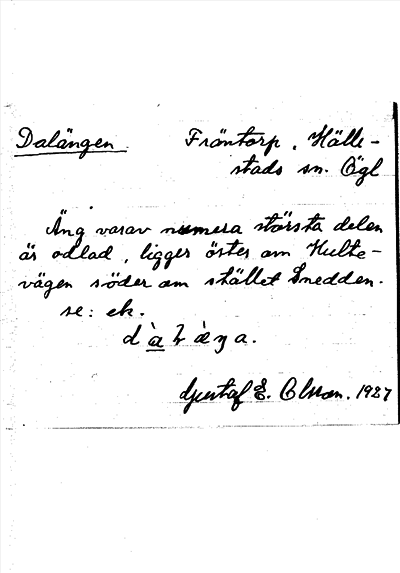 Dalängen. Fräntorp, Hälle-
stads sn. Ögl
Äng varav numera största delen
är odlad, ligger öster om Hulte-
vägen söder om stället Snedden.
se: ek.
Gustaf E. Olsson. 1927